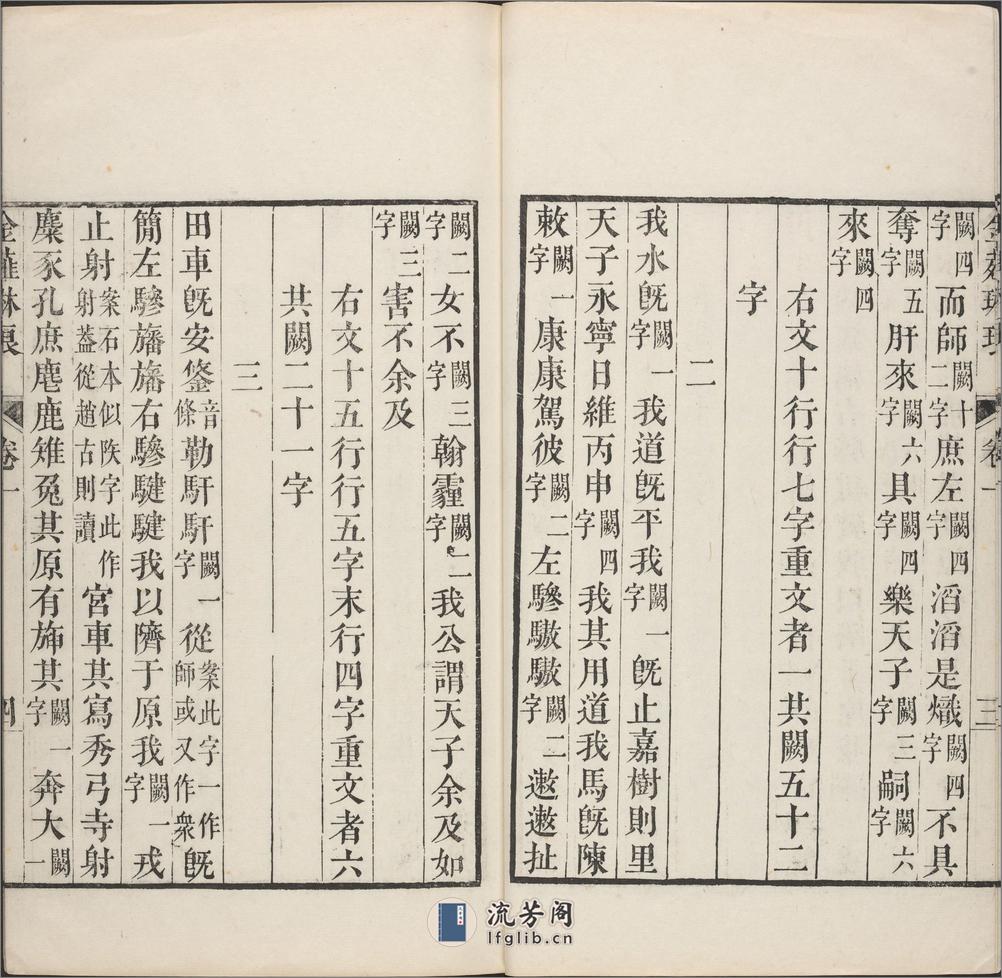 金薤琳琅 卷一 三
闕四字而師闕十二字庶左闕四字滔滔是熾闕四字不具
奪闕五字肝來闕六字具闕四字樂天子闕三字嗣闕六字
來闕四字
右文十行行七字重文者一共闕五十二
字
二
我水旣闕一字我道旣平我闕一字旣止嘉樹則里
天子永寧日維丙申闕四字我其用道我馬旣陳
敕闕一字康康駕彼闕二字左驂驁驁闕二字遬遬扯
闕二字女不闕三字翰霾闕二字我公謂天子余及如
闕三字害不余及
右文十五行行五字末行四字重文者六
共闕二十一字
三
田車旣安鋚音條勒馯馯闕一字從案此字一作師或又作衆旣
簡左驂旛旛右驂騝騝我以隮于原我闕一字戎
止射案石本似字此作射蓋從趙古則讀宮車其寫秀弓寺射
麋豕孔庶麀鹿雉兔其原有斾其闕一字奔大闕一
金薤琳琅 卷一 四
流芳阁
lfglib.cn